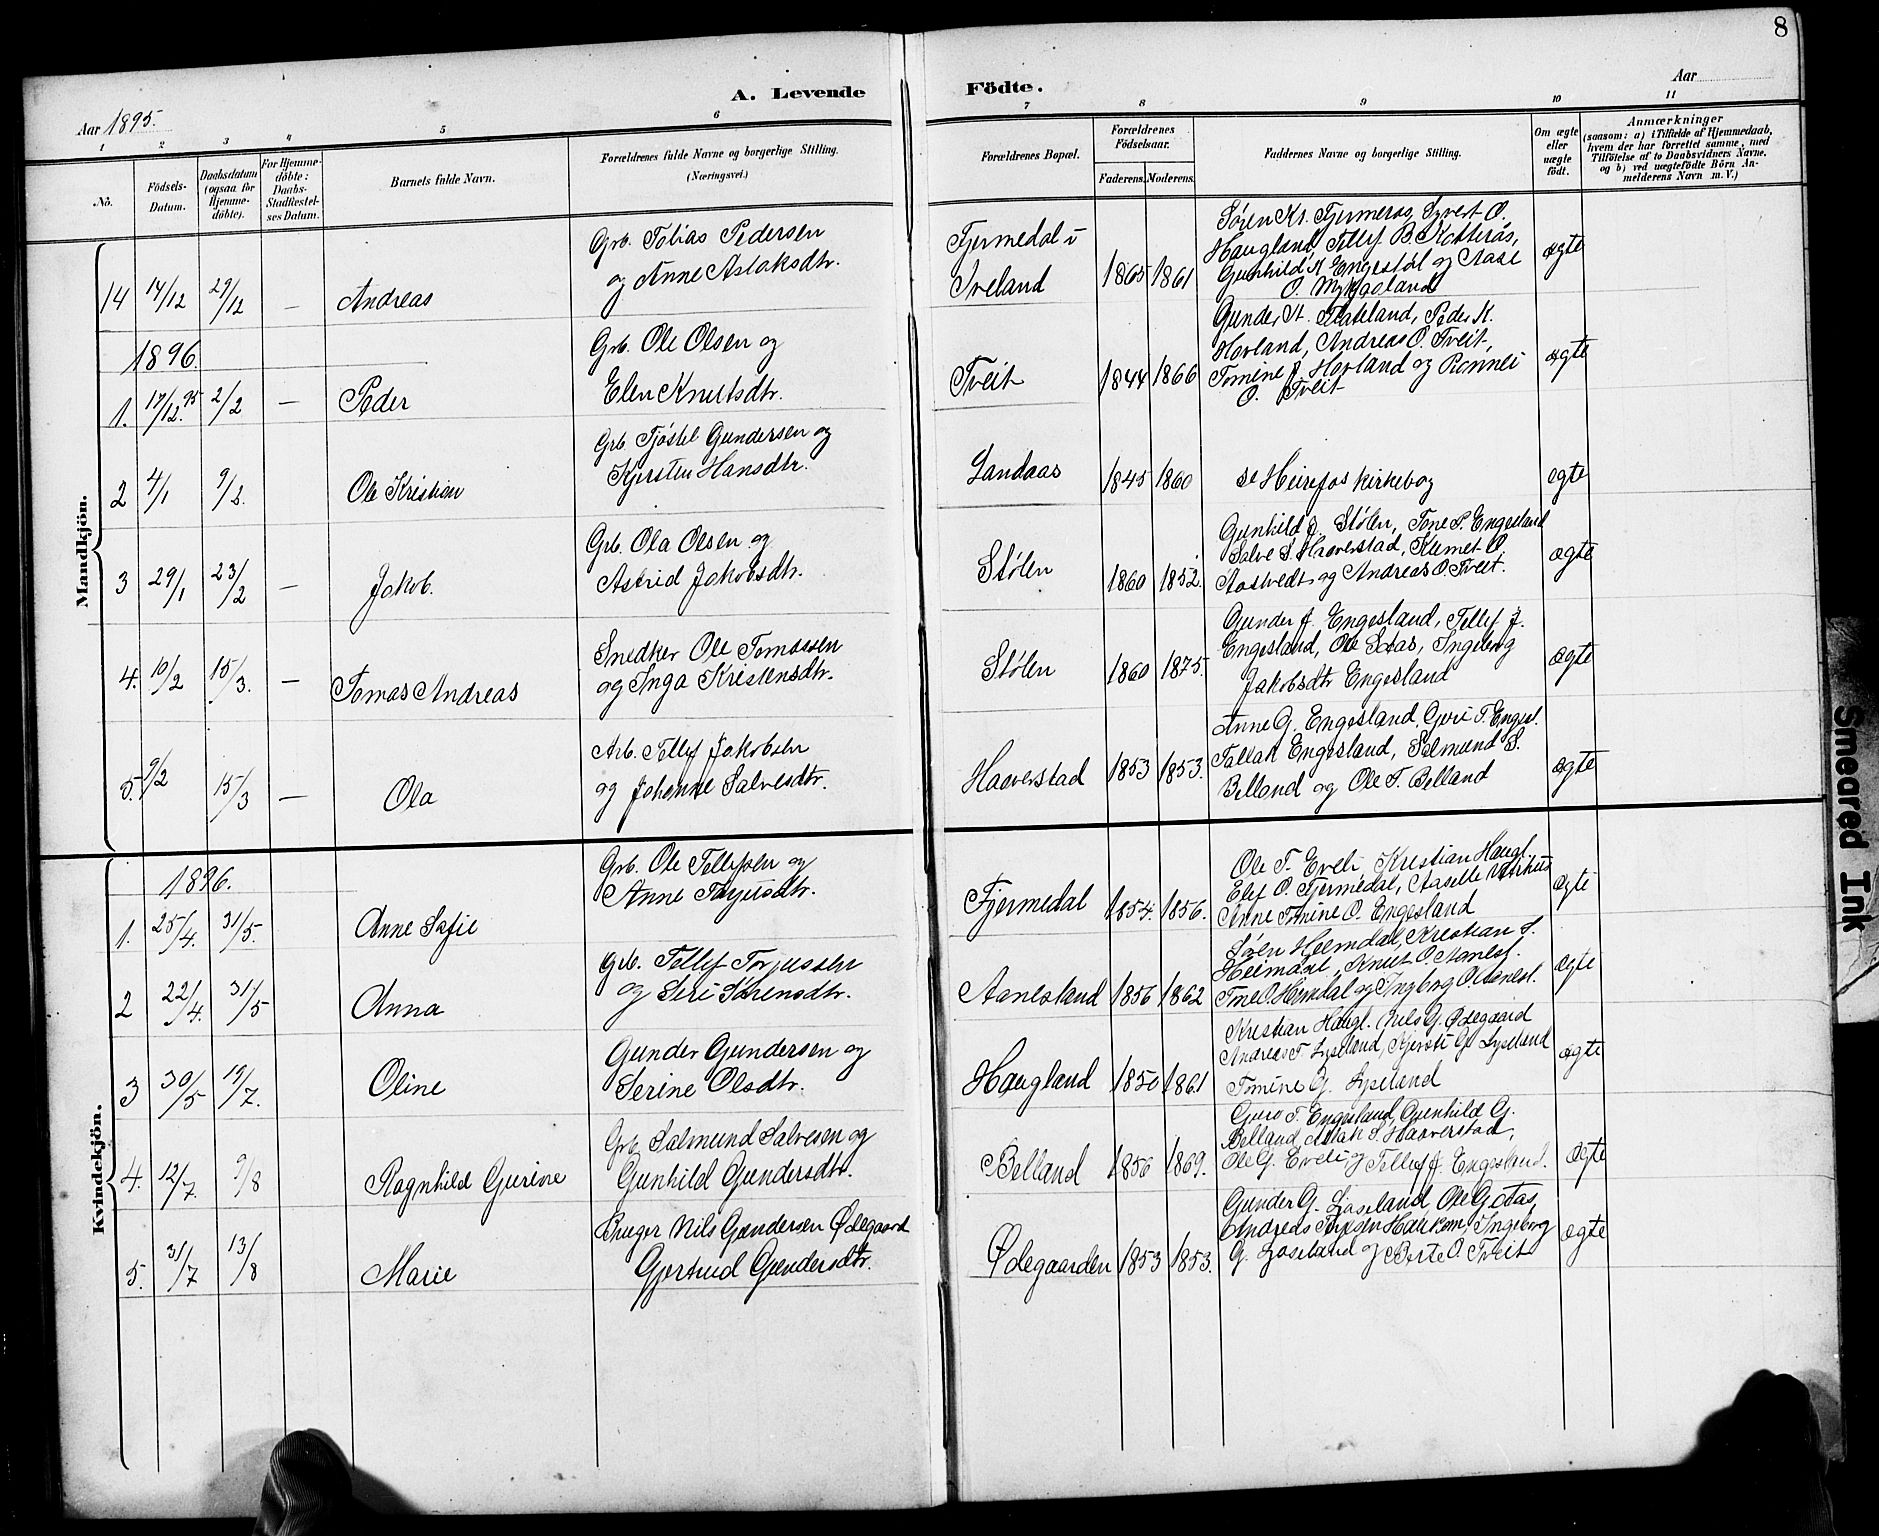 8
A. Levende Födte.
Aar 1895.
Aar
1 2 3 4 5 6 7 8 9 10 11
No.
Födsels-Datum.
Daabsdatum (ogsaa for Hjemmedöbte).
For Hjemmedöbte: Daabs-Stadfæstelses Datum.
Barnets fulde Navn.
Forældrenes fulde Navne og borgerlige Stilling.
(Næringsvei.)
Forældrenes Bopæl.
Forældrenes Födselsaar.
Faderens. Moderens.
Faddernes Navne og borgerlige Stilling.
Om ægte eller uægte födt.
Anmærkninger
(saasom: a) i Tilfælde af Hjemmedaab,
hvem der har forrettet samme, med
Tilföielse af to Daabsvidners Navne.
og b) ved uægtefödte Börn An-
melderens Navn m. V.)
Mandkjön.
14 14/12 29/12 — Andreas
Grb. Tobias Pedersen
og Anne Aslaksdtr.
Fjermedal i
Iveland
1865 1861
Søren Kr. Fjermeros, Syvert O.
Haugland, Tellef B. Katterås,
Gunhild K. Engestøl og Aase
O. Mykjaasland
ægte
1896.
1. 17/12 95 2/2 — Peder
Grb. Ole Olsen og
Elen Knutsdtr.
Tveit
1844 1866
Gunder St. Flakeland, Peder K.
Hovland, Andreas O. Tveit,
Tomine J. Hovland og Ronnei
O. Tveit
ægte
2 4/1 9/2. Ole Kristian
Grb Tjøstel Gundersen og
Kjersten Hansdtr.
Landaas
1845 1860
se Heirefos kirkebog
ægte
3 29/1 23/2 — Jakob.
Grb. Ola Olsen og
Astrid Jakobsdtr.
Stølen
1860 1852.
Gunhild J. Stølen, Tone P. Engesland
Salve S. Haaverstad, Kumet O.
Aastvedt og Andreas O. Tveit.
ægte
4. 10/2 15/3. — Tomas Andreas
Snedker Ole Tomassen
og Inga Kristensdtr.
Stølen
1860 1875.
Gunder J. Engesland, Tellef J.
Engesland, Ole Aas, Ingeborg
Jakobsdtr Engesland
ægte
5. 9/2 15/3 — Ola
Arb. Tellef Jakobsen
og Johanne Salvesdtr.
Haaverstad
1853 1853.
Anne G. Engesland, Guri T. Engesl.
Tallak Engesland, Salmund S.
Belland og Ole T. Belland
ægte
Kvindekjön.
1896.
1. 25/4. 31/5. Anne Sofie
Grb. Ole Tellefsen og
Anne Terjesdtr.
Fjermedal
1854. 1856.
Ole T. Eveli, Kristian Haugl.
Elef O. Fjermedal, Aaselle
Anne Tomine O. Engesland
ægte
2 22/4. 31/5 Anna
Grb. Tellef Torjussen
og Siri Sørensdtr.
Aanesland
1856 1862
Søren Heimdal, Kristian S.
Heimdal, Knut O. Aanesl.
Tone O. Heimdal og Ingborg O. Aanesl.
ægte
3 30/5 19/7. Oline
Gunder Gundersen og
Serine Olsdtr.
Haugland
1850 1861
Kristian Haugl. Nils G. Ødegaard
Andreas T. Lyseland, Kjersti G. Lyseland
Tomine G. Lyseland
ægte
4. 12/7. 9/8 Ragnhild Gurine
Grb. Salmund Salvesen og
Gunhild Gundersdtr.
Belland
1856 1869.
Guro T. Engesland, Gunhild G.
Belland, Aslak S. Haaverstad,
Ole G. Eveli og Tellef J. Engesland.
ægte
5. 31/7 13/8 Marie
Bruger Nils Gundersen Ødegaard
Gjertrud Gundersdtr.
Ødegaarden
1853 1853.
Gunder G. Lyseland, Ole G. Aas,
Andreas Haukom, Ingeborg
G. Lyseland og Berte O. Tveit
ægte
Smeared Ink